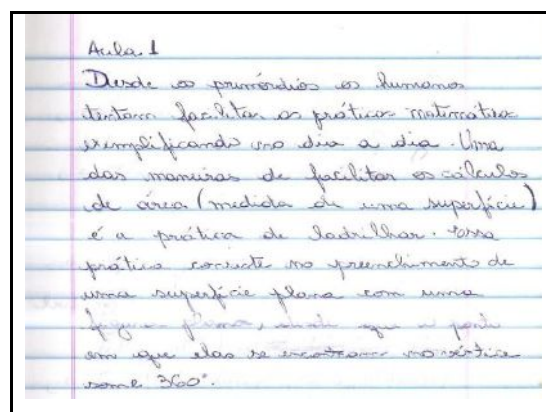 Aula 1
Desde os primórdios os humanos
tentam facilitar as práticas matemática
exemplificando no dia a dia. Uma
das maneiras de facilitar os cálculos
de área (medida de uma superfície)
é a prática de ladrilhar. Essa
prática consiste no preenchimento de
uma superfície plana com uma
figura plana, desde que o ponto
em que elas se encontram no vértice
some 360°.